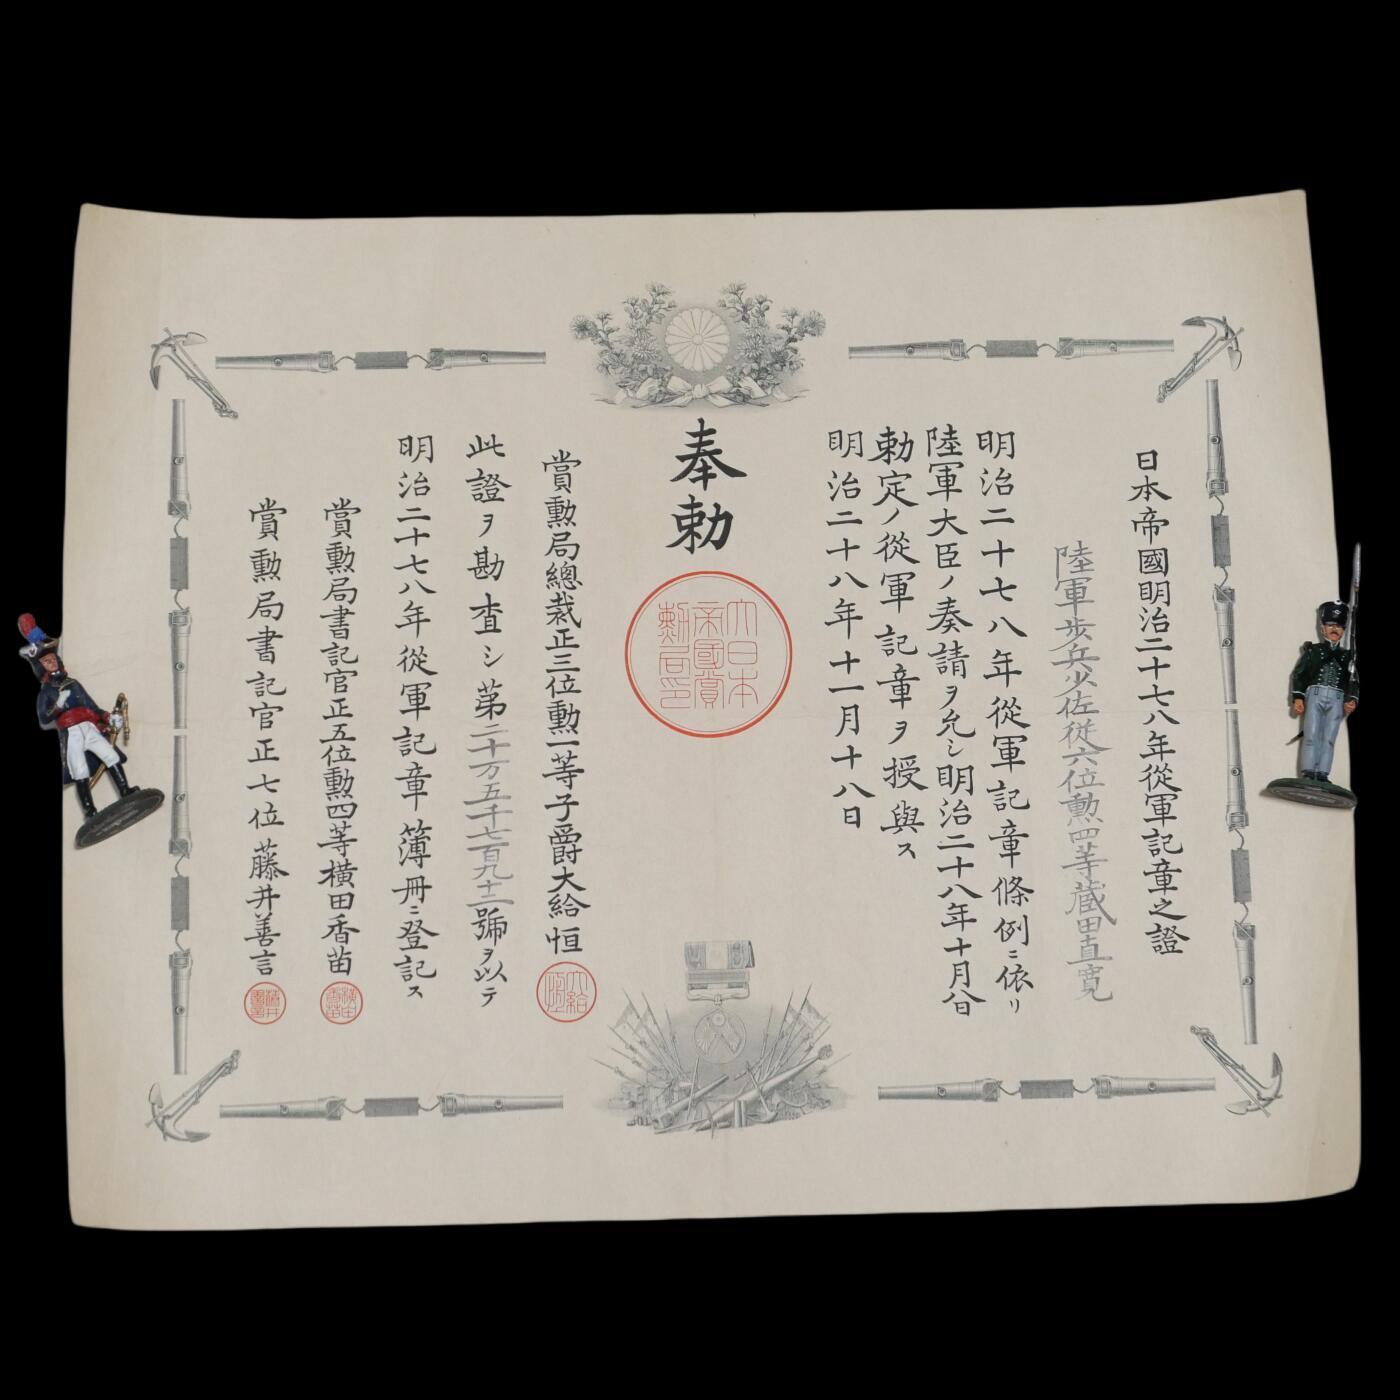 日本帝國明治二十七八年從軍記章之證
陸軍歩兵少佐從六位勲四等蔵田直寛
明治二十七八年從軍記章條例ニ依リ
陸軍大臣ノ奏請ヲ允シ明治二十八年十月八日
勅定ノ從軍記章ヲ授與ス
明治二十八年十一月十八日
奉勅
大日本
帝國賞
勲局印
賞勲局總裁正三位勲一等子爵大給恒
大給
恒
此證ヲ勘査シ第二十万五千七百九十二號ヲ以テ
明治二十七八年從軍記章簿册ニ登記ス
賞勲局書記官正五位勲四等横田香苗
横田
香苗
賞勲局書記官正七位藤井善言
藤井
善言